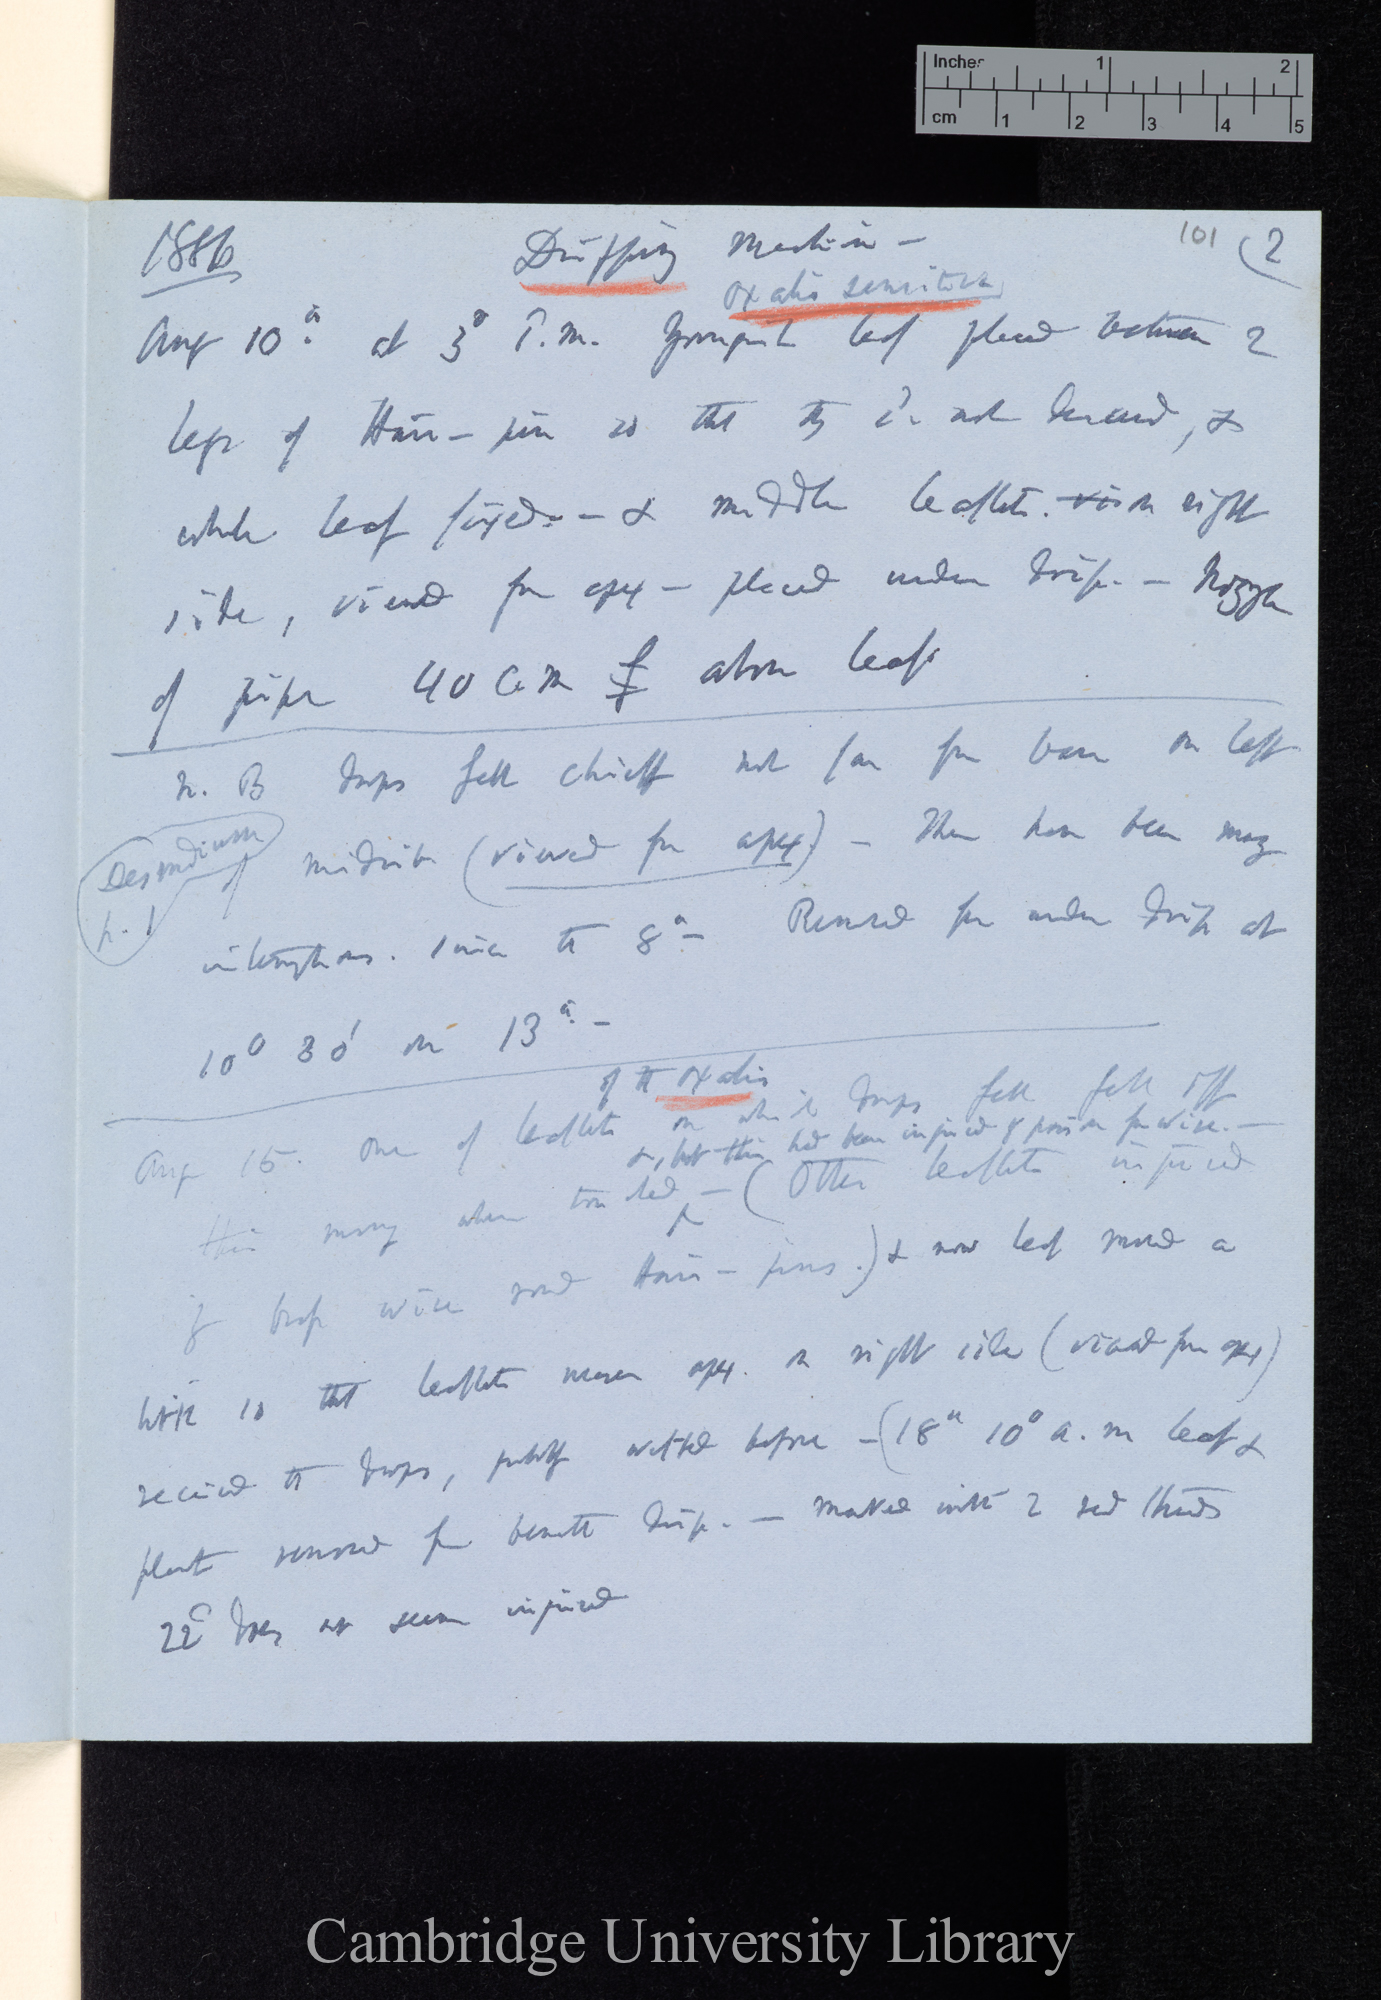 Inches 1 2
cm 1 2 3 4 5
101 (2
Dripping Machine –
Oxalis sensitiva
Aug 10th at 3° P.m. Youngest leaf placed between 2
legs of Hair-pin so that it is not , &
whole leaf fixed. – & middle leaflets on right
side, viewed from apex – placed under drip. – Nozzle
of pipe 40 cm above leaf
N. B drops fell chiefly not far from base on left
of midrib (viewed from apex) – There have been many
Desmodium
p. 1
interruptions. since the 8th – Removed from under drip at
10° 30' on 13th –
of the Oxalis
Aug 15. One of leaflets on which drops fell fell off
&, but this had been injured by from wire. –
this morng when touched – (Other leaflets injured
by wire round Hair-pins.) & now leaf moved a
little so that leaflets nearer apex. on right side (viewed from apex)
received the drops, before – (18th 10° a.m leaf &
plant removed from beneath drip. – marked with 2 red threads
22d does not seem injured
Cambridge University Library